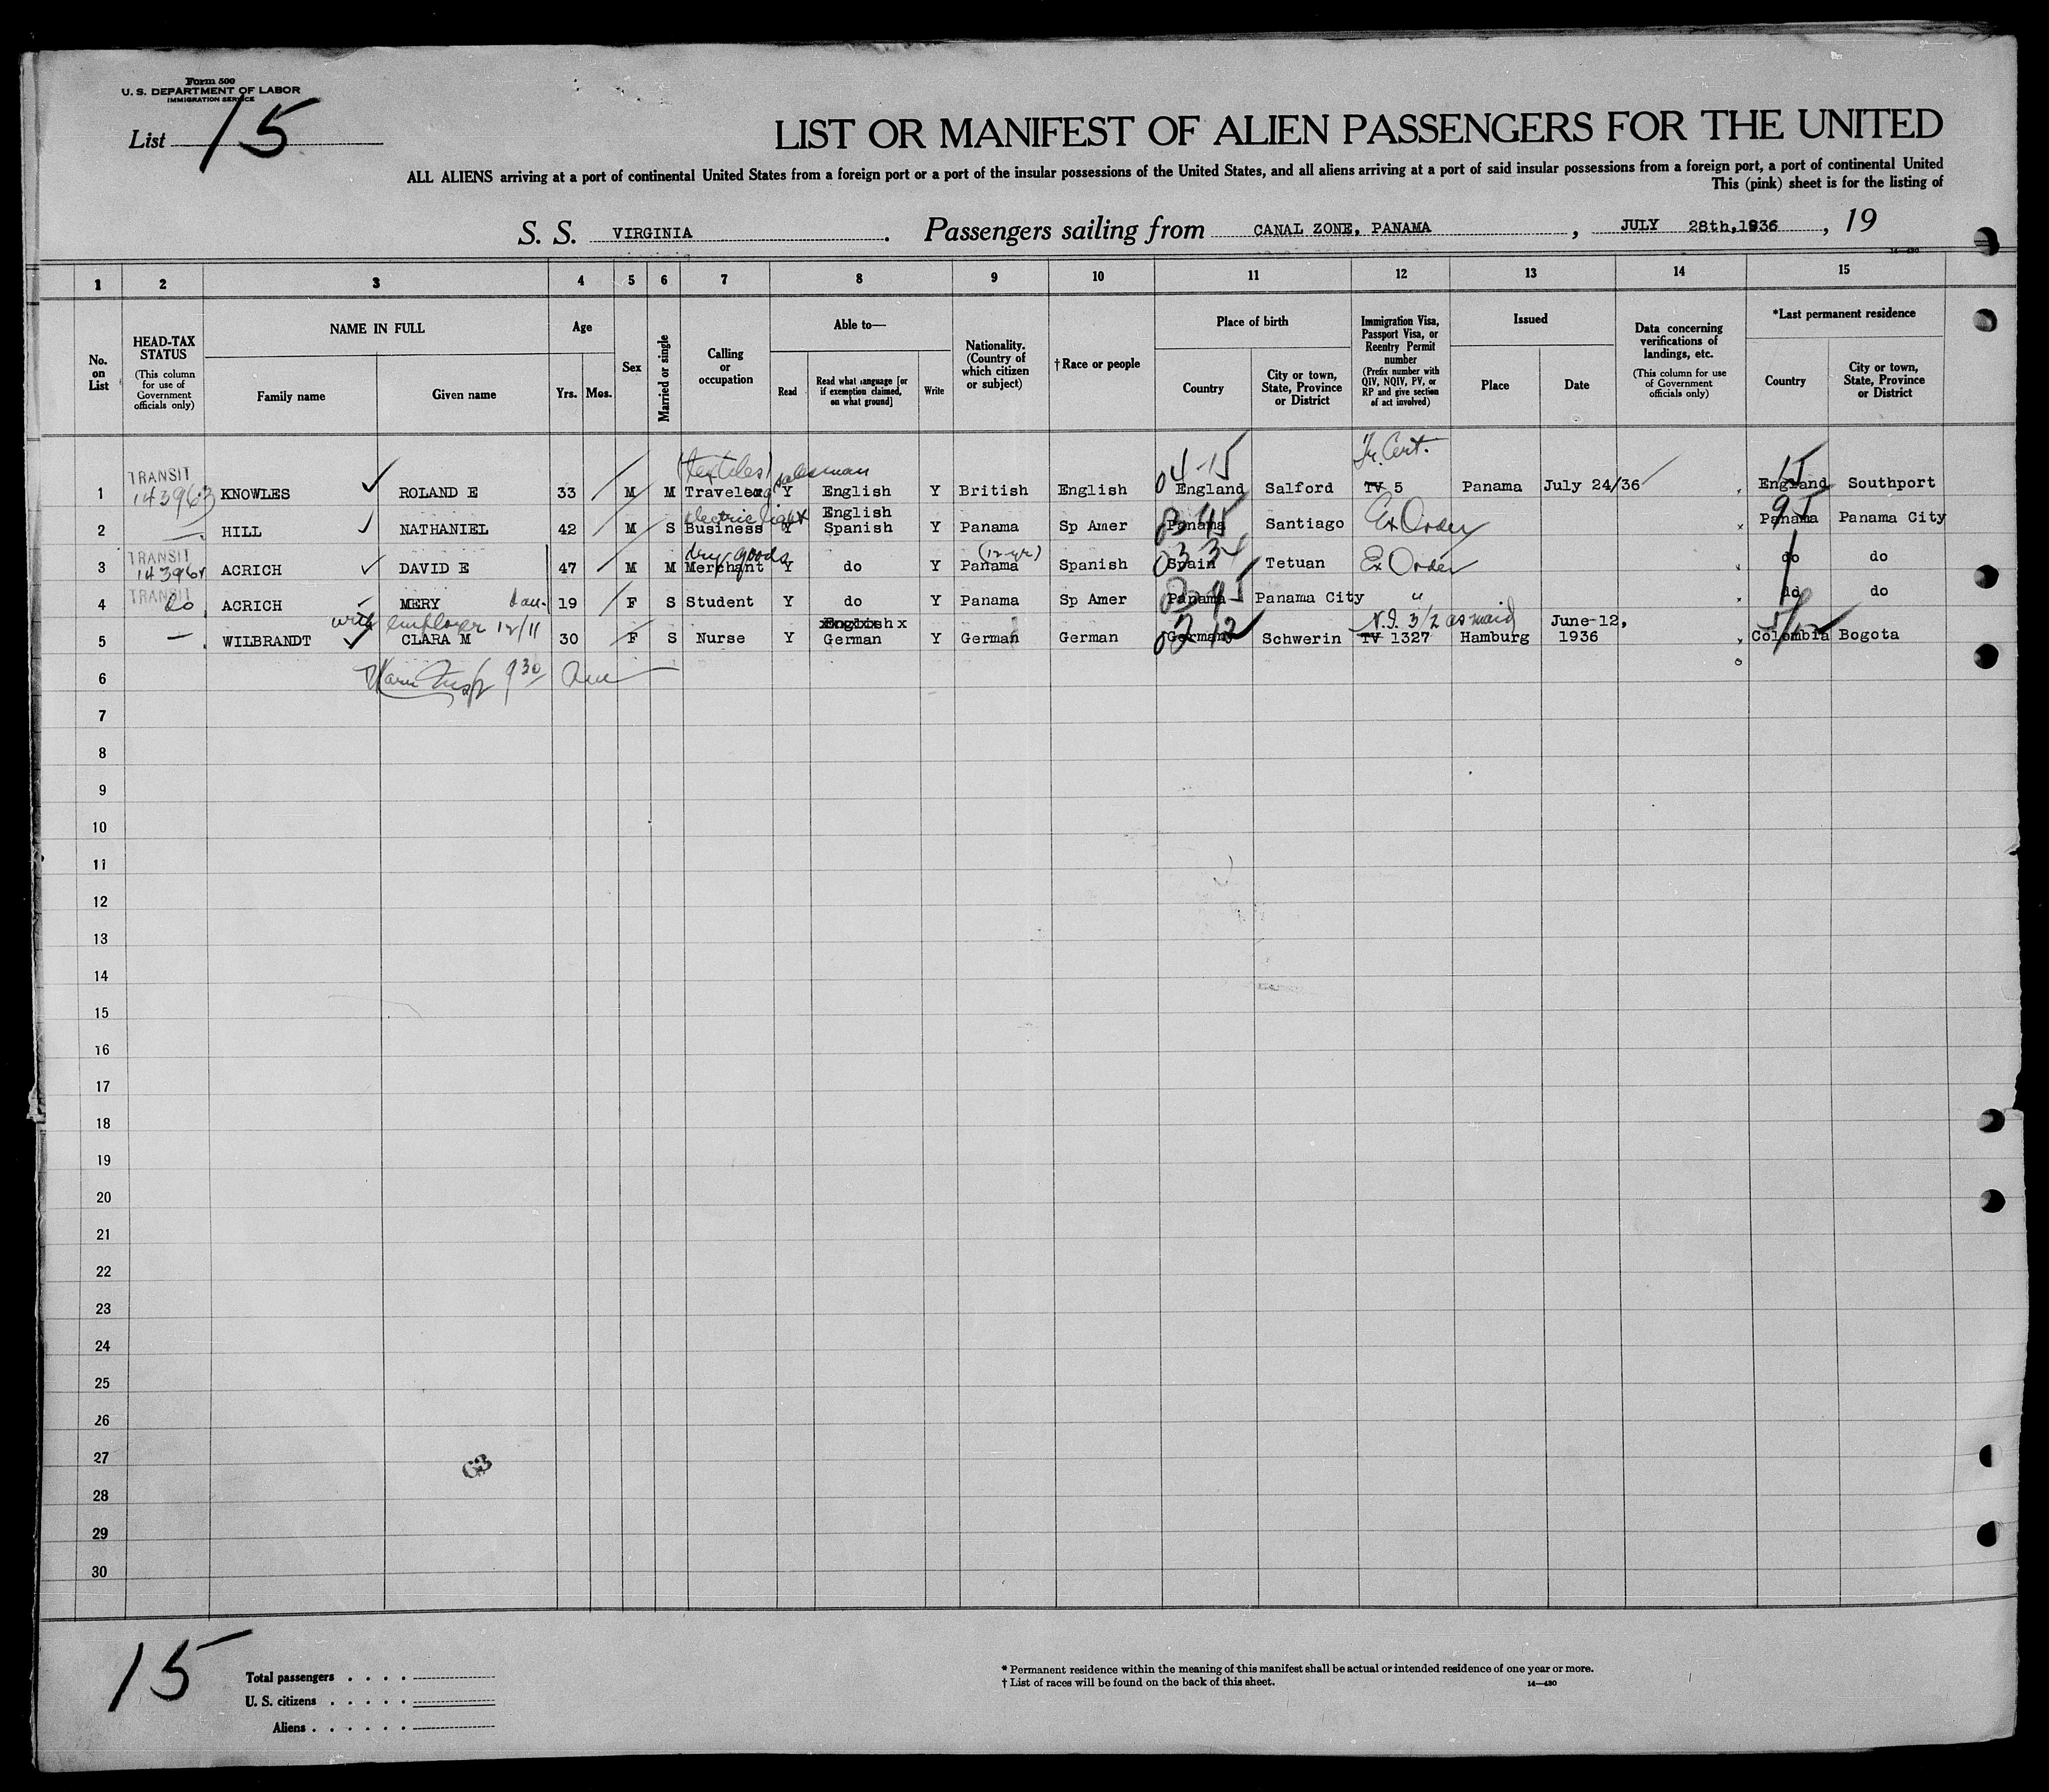 Form 500
U. S. DEPARTMENT OF LABOR
IMMIGRATION SERVICE
List 15
LIST OR MANIFEST OF ALIEN PASSENGERS FOR THE UNITED
ALL ALIENS arriving at a port of continental United States from a foreign port or a port of the insular possessions of the United States, and all aliens arriving at a port of said insular possessions from a foreign port, a port of continental United
This (pink) sheet is for the listing of
S. S. VIRGINIA. Passengers sailing from CANAL ZONE, PANAMA, JULY 28th,1936, 19
14—430
1 2 3 4 5 6 7 8 9 10 11 12 13 14 15
No. on List
HEAD-TAX STATUS
(This column for use of Government officials only)
NAME IN FULL
Family name
Given name
Age
Yrs. Mos.
Sex
Married or single
Calling or occupation
Able to—
Read
Read what language [or if exemption claimed, on what ground]
Write
Nationality. (Country of which citizen or subject)
†Race or people
Place of birth
Country
City or town, State, Province or District
Immigration Visa, Passport Visa, or Reentry Permit number
(Prefix number with QIV, NQIV, PV, or RP and give section of act involved)
Issued
Place
Date
Data concerning verifications of landings, etc.
(This column for use of Government officials only)
*Last permanent residence
Country
City or town, State, Province or District
(textiles) salesman 04-15 Tr. Cert. 15
1 TRANSIT 143963 KNOWLES ROLAND E 33 M M Traveler Y English Y British English England Salford TV 5 Panama July 24/36 England Southport
electric light English 95
2 HILL NATHANIEL 42 M S Business Y Spanish Y Panama Sp Amer Panama Santiago Ex Order Panama Panama City
dry goods (12 yr) 03 34
3 TRANSIT 14396 ACRICH DAVID E 47 M M Merchant Y do Y Panama Spanish Spain Tetuan Ex Order do do
4 TRANSIT do ACRICH MERY dau. 19 F S Student Y do Y Panama Sp Amer Panama Panama City " do do
with employer 12/11 English N.I. 3/2 as maid June-12,
5 — WILBRANDT CLARA M 30 F S Nurse Y German Y German German 02 12 Germany Schwerin TV 1327 Hamburg 1936 Colombia Bogota
6 9 30
7
8
9
10
11
12
13
14
15
16
17
18
19
20
21
22
23
24
25
26
27
63
28
29
30
15
Total passengers . . . .
U. S. citizens . . . . .
Aliens . . . . . .
* Permanent residence within the meaning of this manifest shall be actual or intended residence of one year or more.
† List of races will be found on the back of this sheet.
14—430